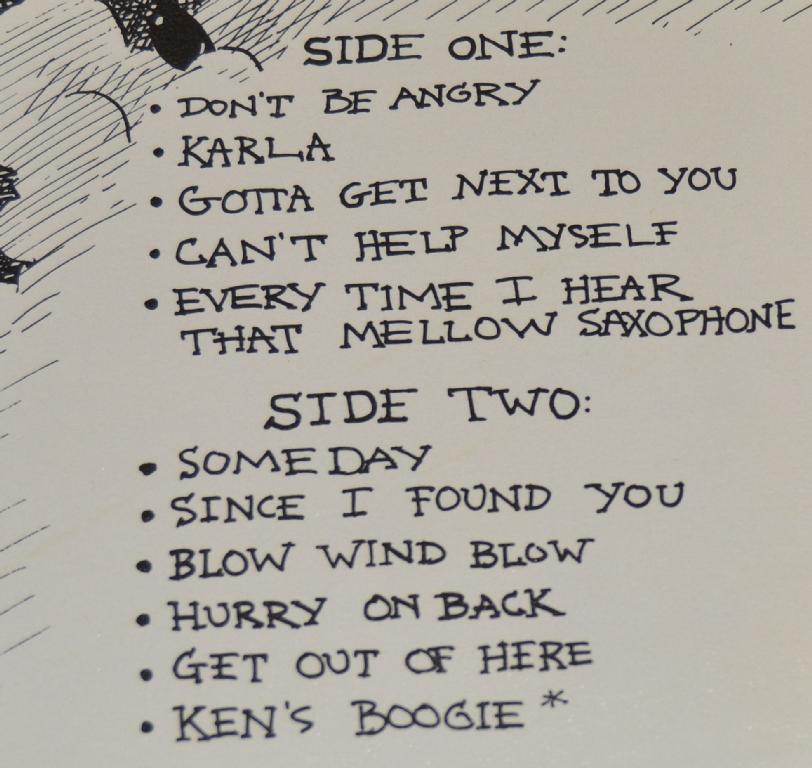 SIDE ONE:
• DON'T BE ANGRY
• KARLA
• GOTTA GET NEXT TO YOU
• CAN'T HELP MYSELF
• EVERY TIME I HEAR
THAT MELLOW SAXOPHONE
SIDE TWO:
• SOMEDAY
• SINCE I FOUND YOU
• BLOW WIND BLOW
• HURRY ON BACK
• GET OUT OF HERE
• KEN'S BOOGIE *